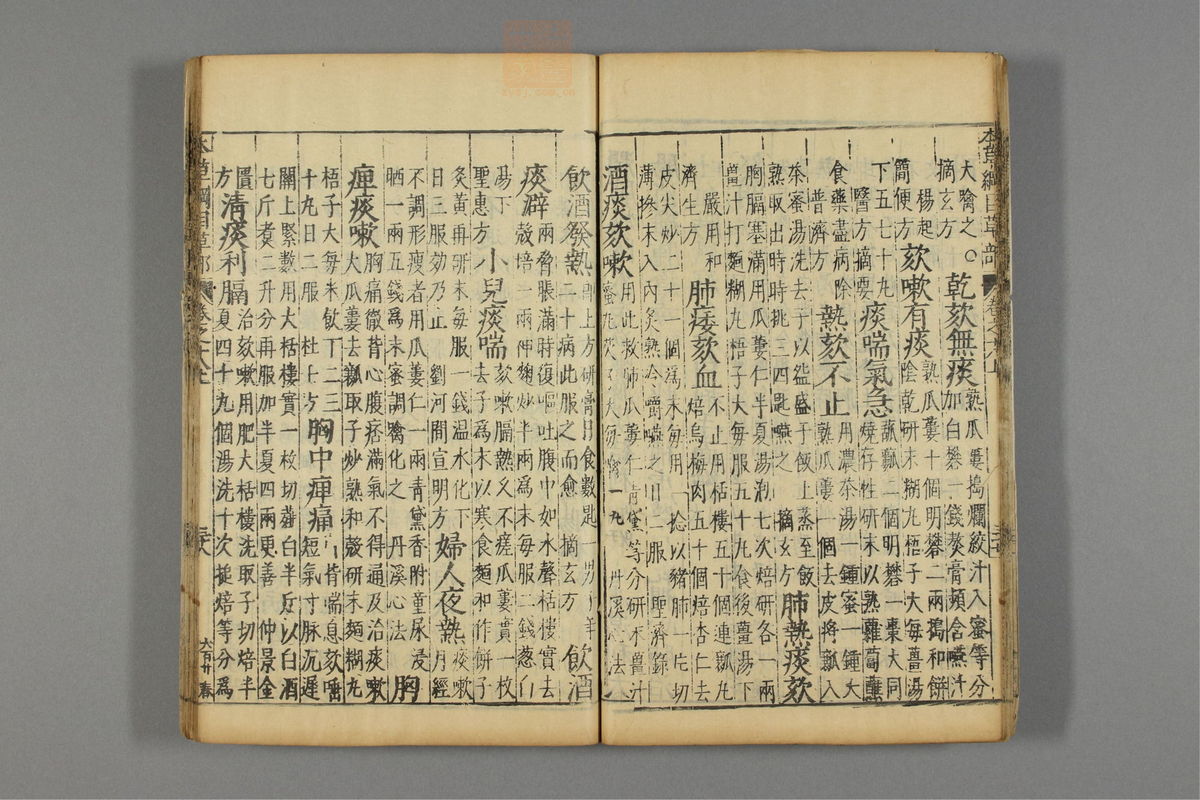 大噙之。
摘玄方
○乾欬無痰
熟瓜蔞搗爛絞汁入蜜等分
加白礬一錢熬膏頻含嚥汁
楊起
簡便方
欬嗽有痰
熟瓜蔞十個明礬二兩搗和餅
陰乾研末糊丸梧子大每薑湯
下五七十丸
醫方摘要
痰喘氣急
蓏瓤二個明礬一棗大同
燒存性研末以熟蘿蔔蘸
食藥盡病除
普濟方
熱欬不止
用濃茶湯一鍾蜜一鍾大
熟瓜蔞一個去皮將瓤入
茶蜜湯洗去子以盌盛于飯上蒸至飯
熟取出時時挑三四匙嚥之 摘玄方
肺熱痰欬
胸膈塞滿用瓜蔞仁半夏湯泡七次焙研各一兩
薑汁打麪糊丸梧子大每服五十丸食後薑湯下
嚴用和
濟生方
肺痿欬血
不止用栝樓五十個連瓤
焙烏梅肉五十個焙杏仁去
皮尖炒二十一個爲末每用一捻以豬肺一片切
薄摻末入內炙熟冷嚼嚥之日二服 聖濟錄
酒痰欬嗽
用此救肺瓜蔞仁青黛等分研末薑汁
蜜丸芡子大每噙一丸 丹溪心法
飲酒發熱
即上方研膏日食數匙一男子年
二十病此服之而愈 摘玄方
飲酒
痰澼
兩脅脹滿時復嘔吐腹中如水聲栝樓實去
殼焙一兩神麴炒半兩爲末每服二錢葱白
湯下
聖惠方
小兒痰喘
欬嗽膈熱久不瘥瓜蔞實一枚
去子爲末以寒食麪和作餅子
炙黃再研末每服一錢温水化下
日三服効乃止 劉河間宣明方
婦人夜熱
痰嗽
月經
不調形瘦者用瓜蔞仁一兩青黛香附童尿浸
晒一兩五錢爲末蜜調噙化之 丹溪心法
胸
痺痰嗽
胸痛徹背心腹痞滿氣不得通及治痰嗽
大瓜蔞去瓤取子炒熟和殼研末麪糊丸
梧子大每米飲下二三
十丸日二服 杜壬方
胸中痺痛
引背喘息欬唾
短氣寸脉沉遲
關上緊數用大栝樓實一枚切薤白半斤以白酒
七斤煮二升分再服加半夏四兩更善 仲景金
匱
方
清痰利膈
治欬嗽用肥大栝樓洗取子切焙半
夏四十九個湯洗十次搥焙等分爲